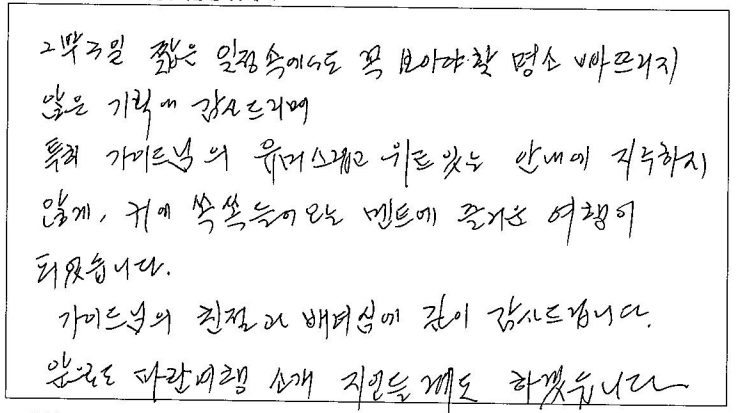 2박3일 짧은 일정속에서도 꼭 보아야할 명소 빠뜨리지
않은 기획에 감사드리며
특히 가이드님의 유머스럽고 위트있는 안내에 지루하지
않게, 귀에 쏙쏙 들어오는 멘트에 즐거운 여행이
되었습니다.
가이드님의 친절과 배려심에 깊이 감사드립니다.
앞으로도 파란여행 소개 지인들께도 하겠습니다